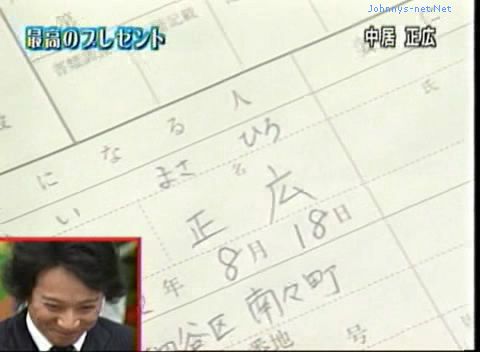 Johnnys-net.Net
最高のプレゼント
中居 正広
書類調
記載
になる人
氏
い まさ ひろ
名
正 広
年 8月 18日
谷区 南々町
番地 号